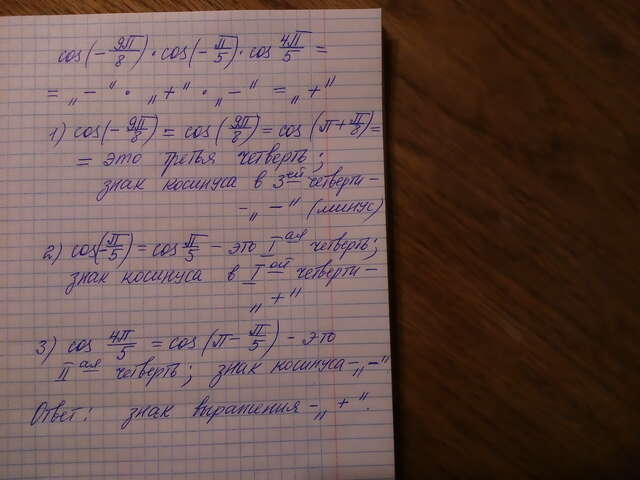 cos(-9π/8) · cos(-π/5) · cos 4π/5 =
= „-" · „+" · „-" = „+"
1) cos(-9π/8) = cos(9π/8) = cos(π+π/8) =
= это третья четверть;
знак косинуса в 3-ей четверти -
- „-" (минус)
2) cos(-π/5) = cos π/5 - это I-ая четверть;
знак косинуса в I-ой четверти -
„+"
3) cos 4π/5 = cos(π-π/5) - это
II-ая четверть; знак косинуса - „-"
Ответ: знак выражения - „+".